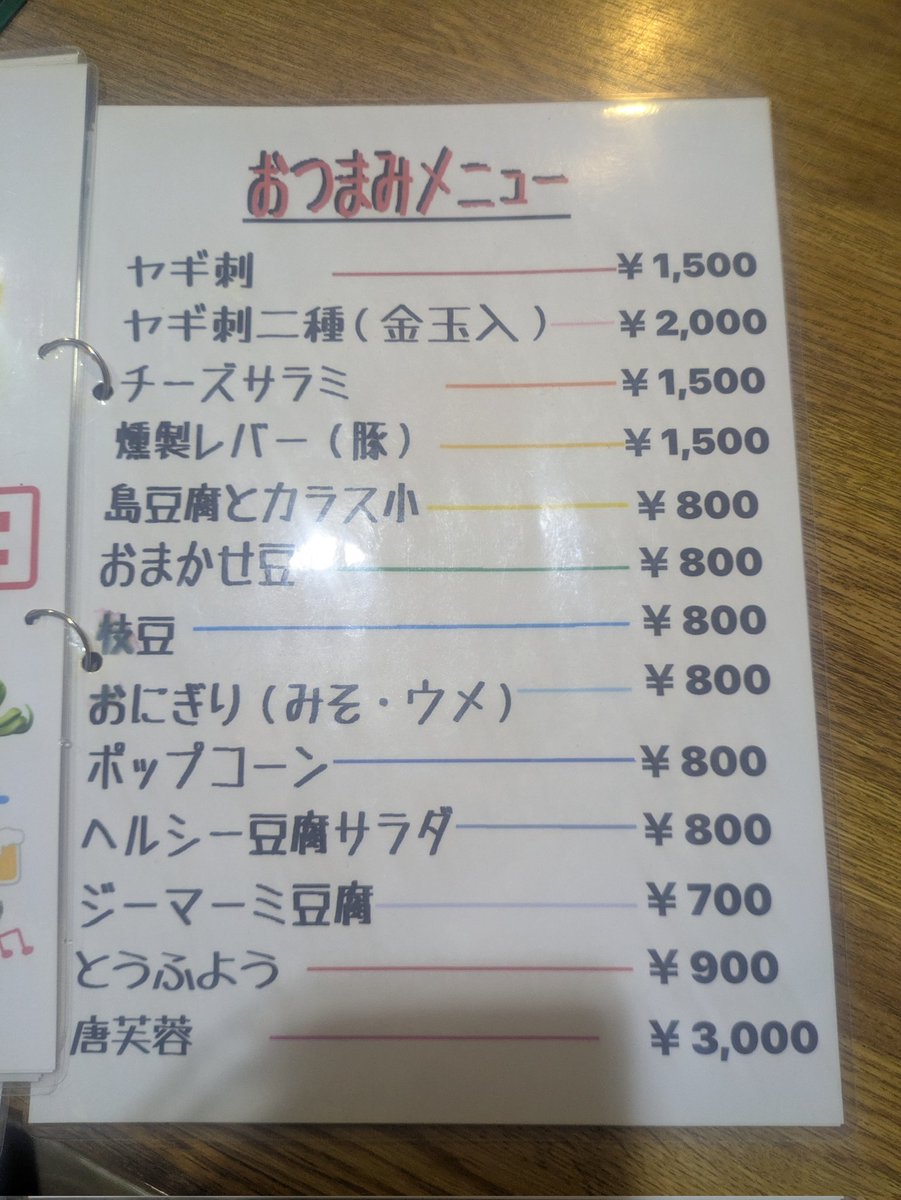 おつまみメニュー
ヤギ刺 ¥1,500
ヤギ刺二種(金玉入) ¥2,000
チーズサラミ ¥1,500
燻製レバー(豚) ¥1,500
島豆腐とカラス小 ¥800
おまかせ豆 ¥800
枝豆 ¥800
おにぎり(みそ・ウメ) ¥800
ポップコーン ¥800
ヘルシー豆腐サラダ ¥800
ジーマーミ豆腐 ¥700
とうふよう ¥900
唐芙蓉 ¥3,000